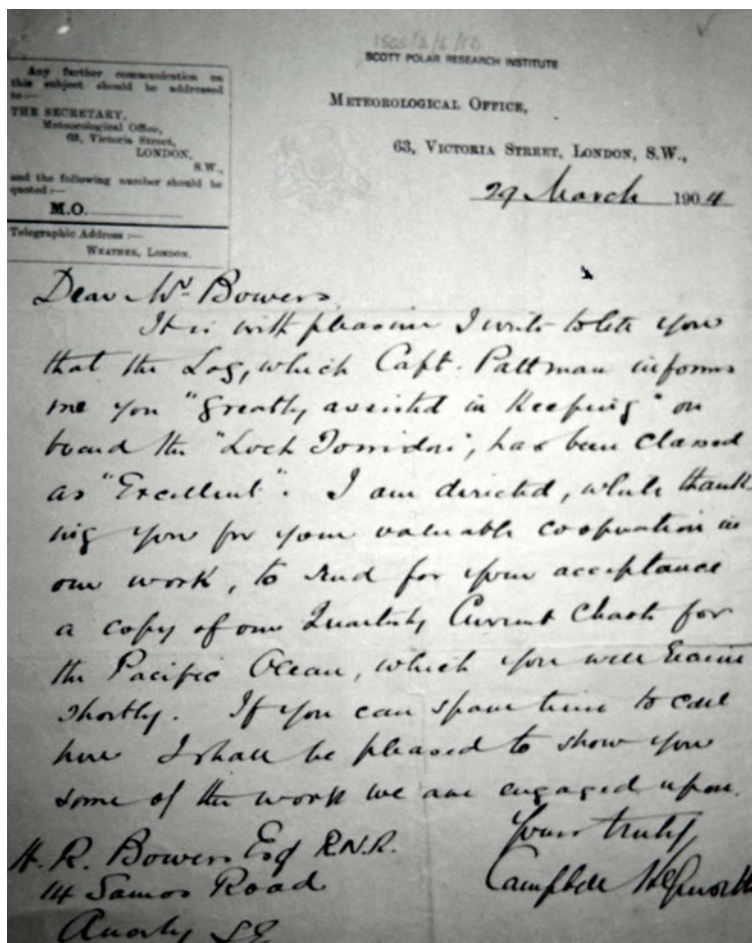 1505/2/6/10
SCOTT POLAR RESEARCH INSTITUTE
Any further communication on
this subject should be addressed
to:—
THE SECRETARY,
Meteorological Office,
63, Victoria Street,
LONDON,
S.W.,
and the following number should be
quoted:—
M.O.
Telegraphic Address:—
WEATHER, LONDON.
METEOROLOGICAL OFFICE,
63, VICTORIA STREET, LONDON, S.W.,
29 March 1904
Dear Mr. Bowers
It is with pleasure I write to you
that the Log, which Capt. Pattman informs
me you "greatly assisted in keeping" on
board the "Loch Torridon", has been classed
as "Excellent". I am directed, while thank
ing you for your valuable cooperation in
our work, to send for your acceptance
a copy of our Quarterly Current Charts for
the Pacific Ocean, which you will receive
shortly. If you can spare time to call
here I shall be pleased to show you
some of the work we are engaged upon.
Yours truly,
Campbell Hepworth
H. R. Bowers Esq R.N.R.
14 Samos Road
Anerly S.E